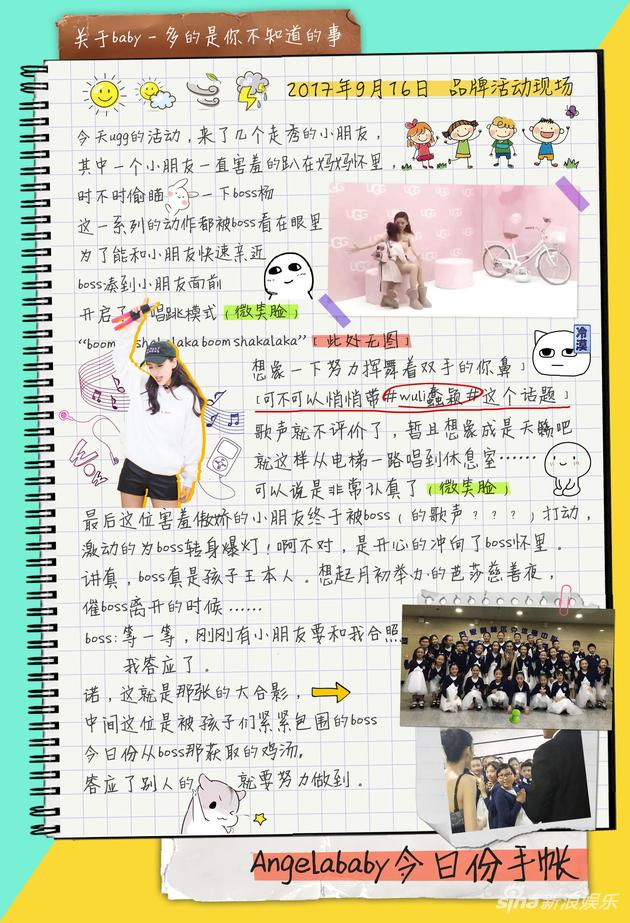 关于baby-多的是你不知道的事
2017年9月16日 品牌活动现场
今天ugg的活动，来了几个走秀的小朋友，
其中一个小朋友一直害羞的趴在妈妈怀里，
时不时偷瞄 一下boss杨
这一系列的动作都被boss看在眼里
为了能和小朋友快速亲近
boss凑到小朋友面前
开启了 唱跳模式（微笑脸）
UGG
“boom shakalaka boom shakalaka”[此处无图]
冷漠
想象一下努力挥舞着双手的你鼻]
[可不可以悄悄带#wuli蠢颖#这个话题]
歌声就不评价了，暂且想象成是天籁吧
就这样从电梯一路唱到休息室……
可以说是非常认真了（微笑脸）
WOW
最后这位害羞傲娇的小朋友终于被boss（的歌声？？？）打动，
激动的为boss转身爆灯！啊不对，是开心的冲向了boss怀里。
讲真，boss真是孩子王本人。想起月初举办的芭莎慈善夜，
催boss离开的时候……
boss：等一等，刚刚有小朋友要和我合照
我答应了。
诺，这就是那张的大合影，
中间这位是被孩子们紧紧包围的boss
今日份从boss那获取的鸡汤，
答应了别人的 就要努力做到。
Angelababy今日份手帐
sina新浪娱乐